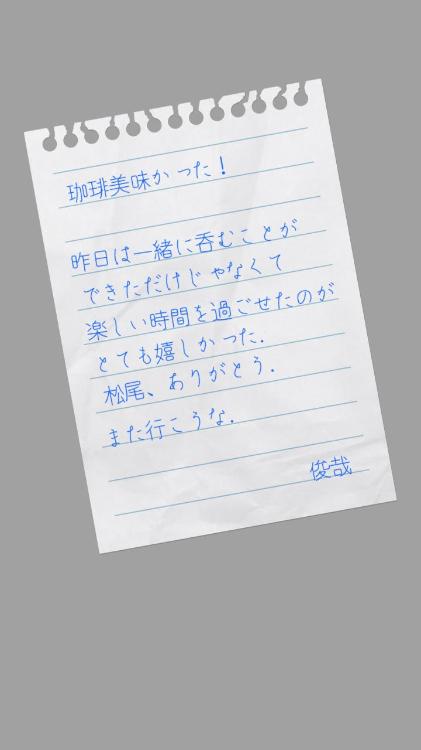 珈琲美味かった！
昨日は一緒に呑むことが
できただけじゃなくて
楽しい時間を過ごせたのが
とても嬉しかった.
松尾、ありがとう.
また行こうな.
俊哉